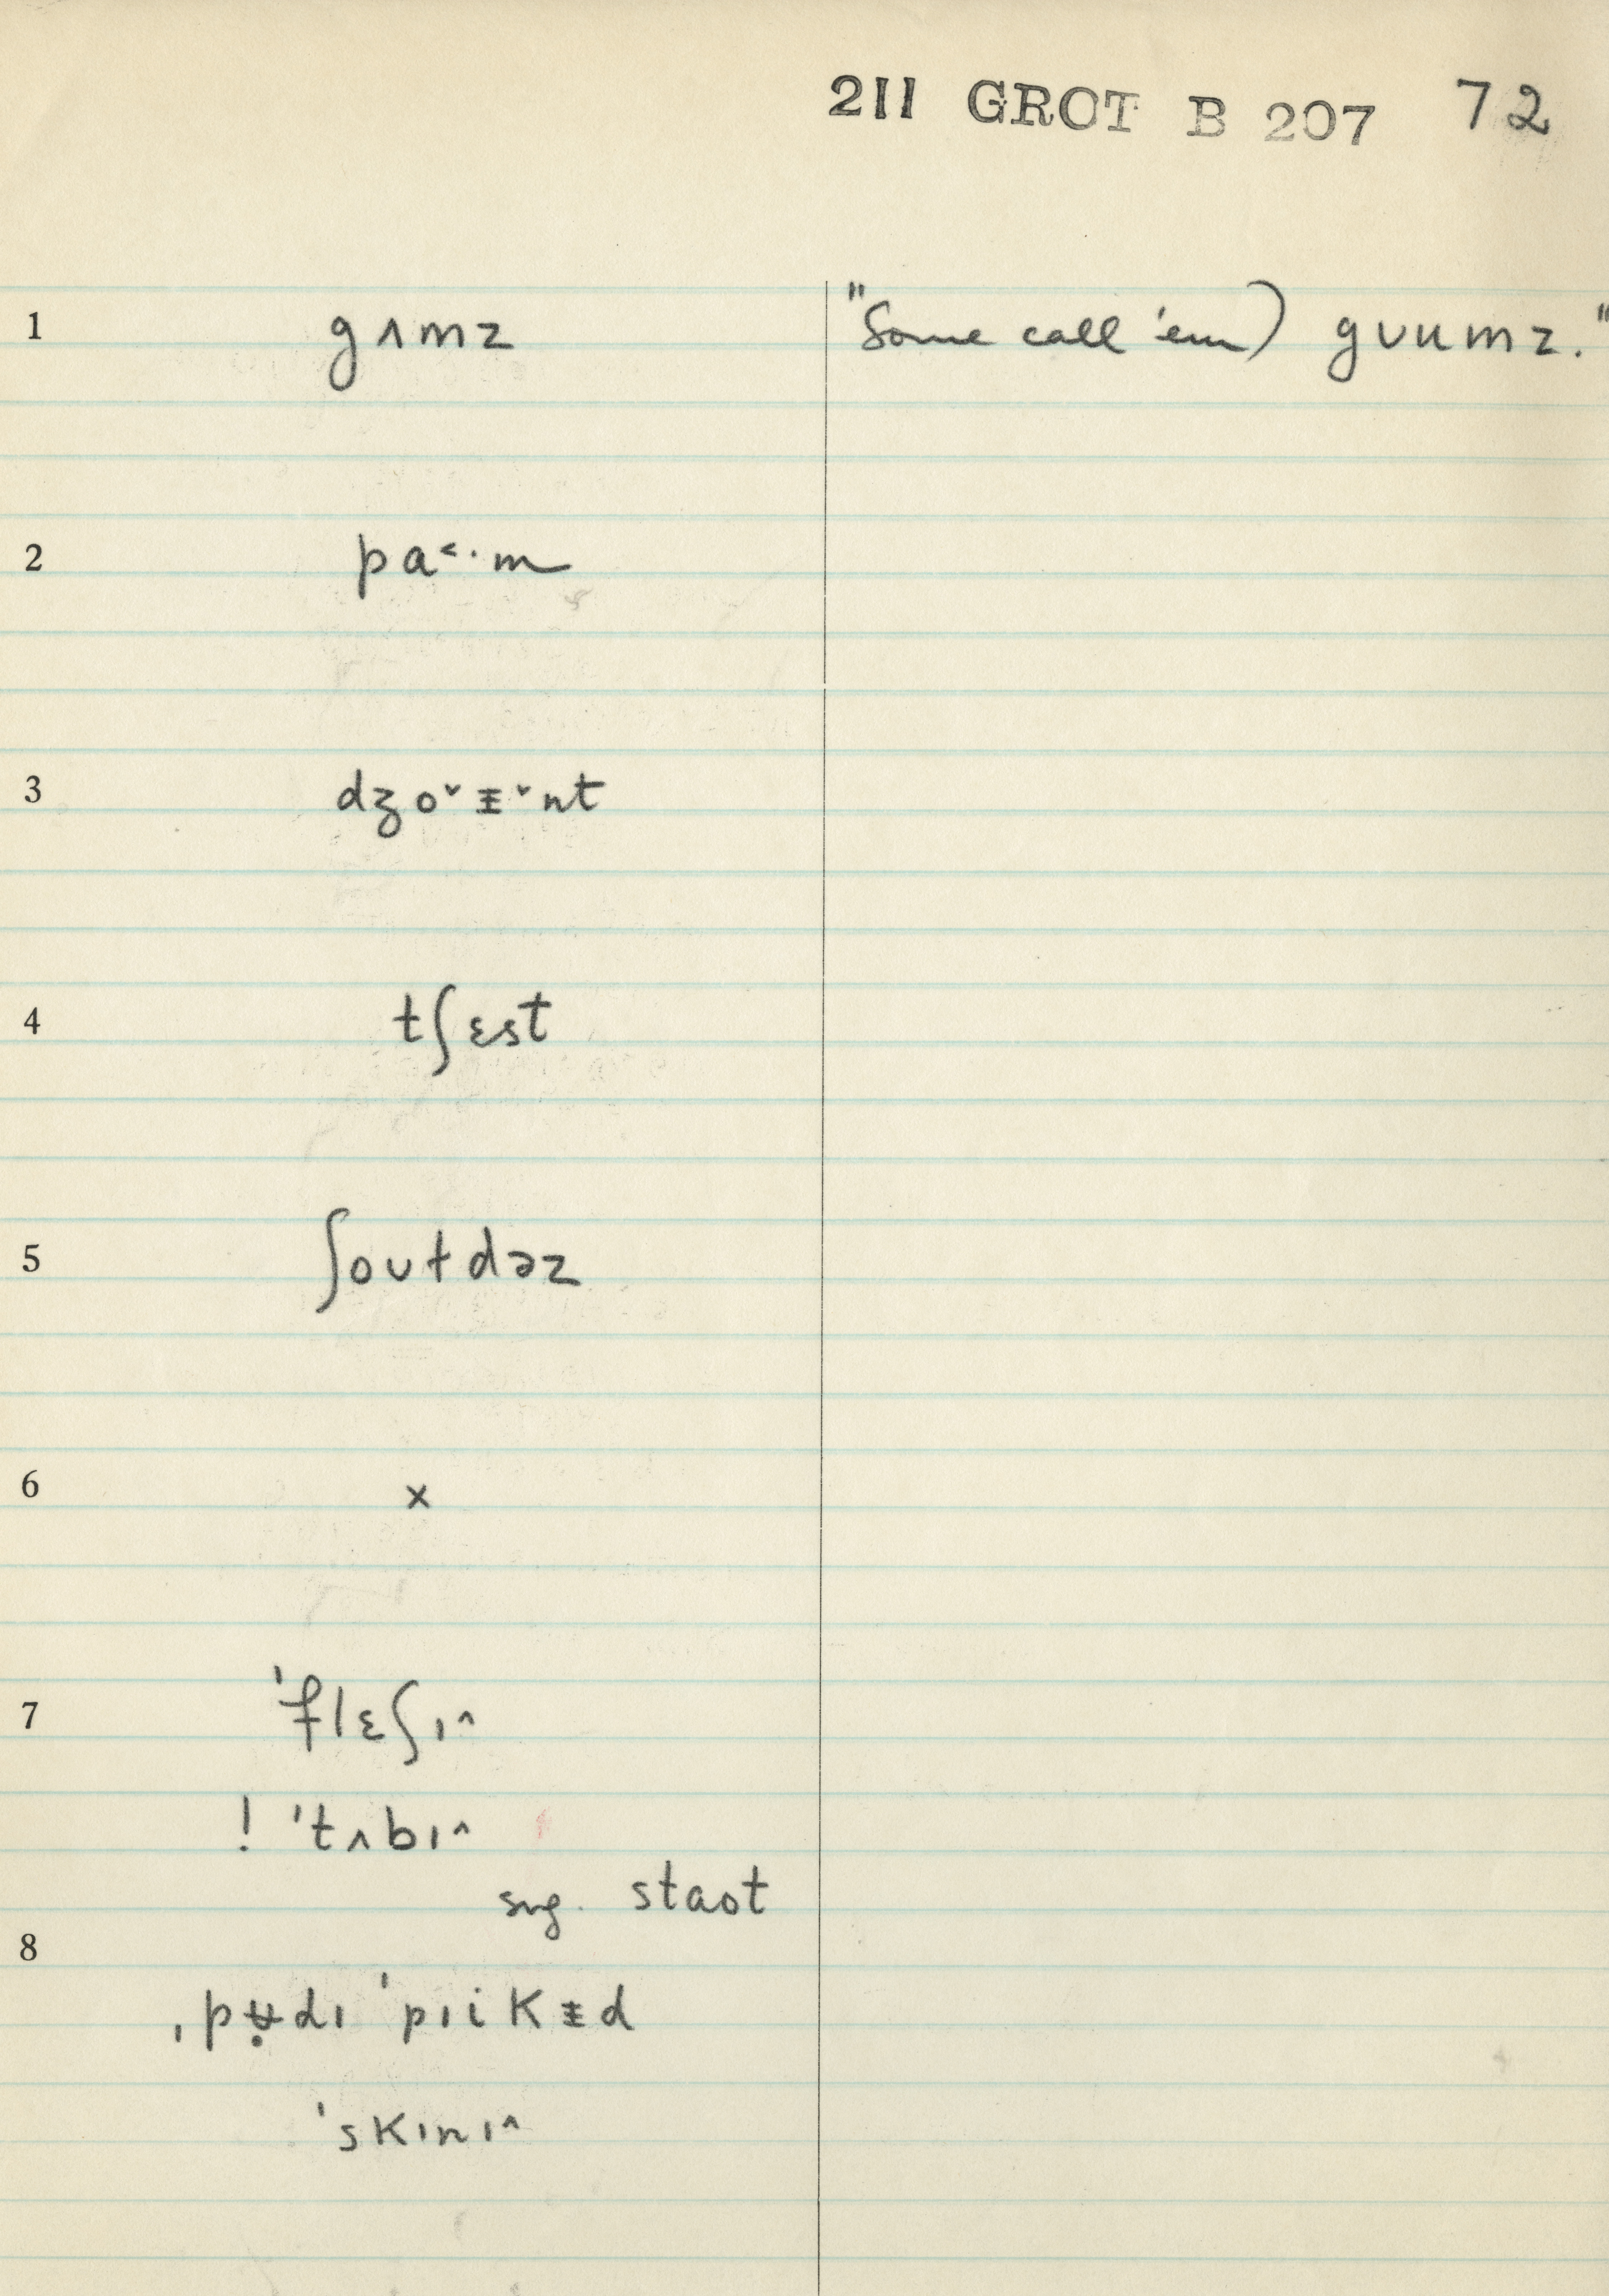 211 GROT B 207 72
1 gʌmz "Some call 'em) gʊumz."
2 pa˂·m
3 dʒo˅ɨ˅nt
4 tʃɛst
5 ʃoʊɫdəz
6 x
7 'flɛʃɪ^
! 'tʌbɪ^
sug. staot
8
ˌpʉ̣dɪ 'pɪikɨd
'skɪnɪ^